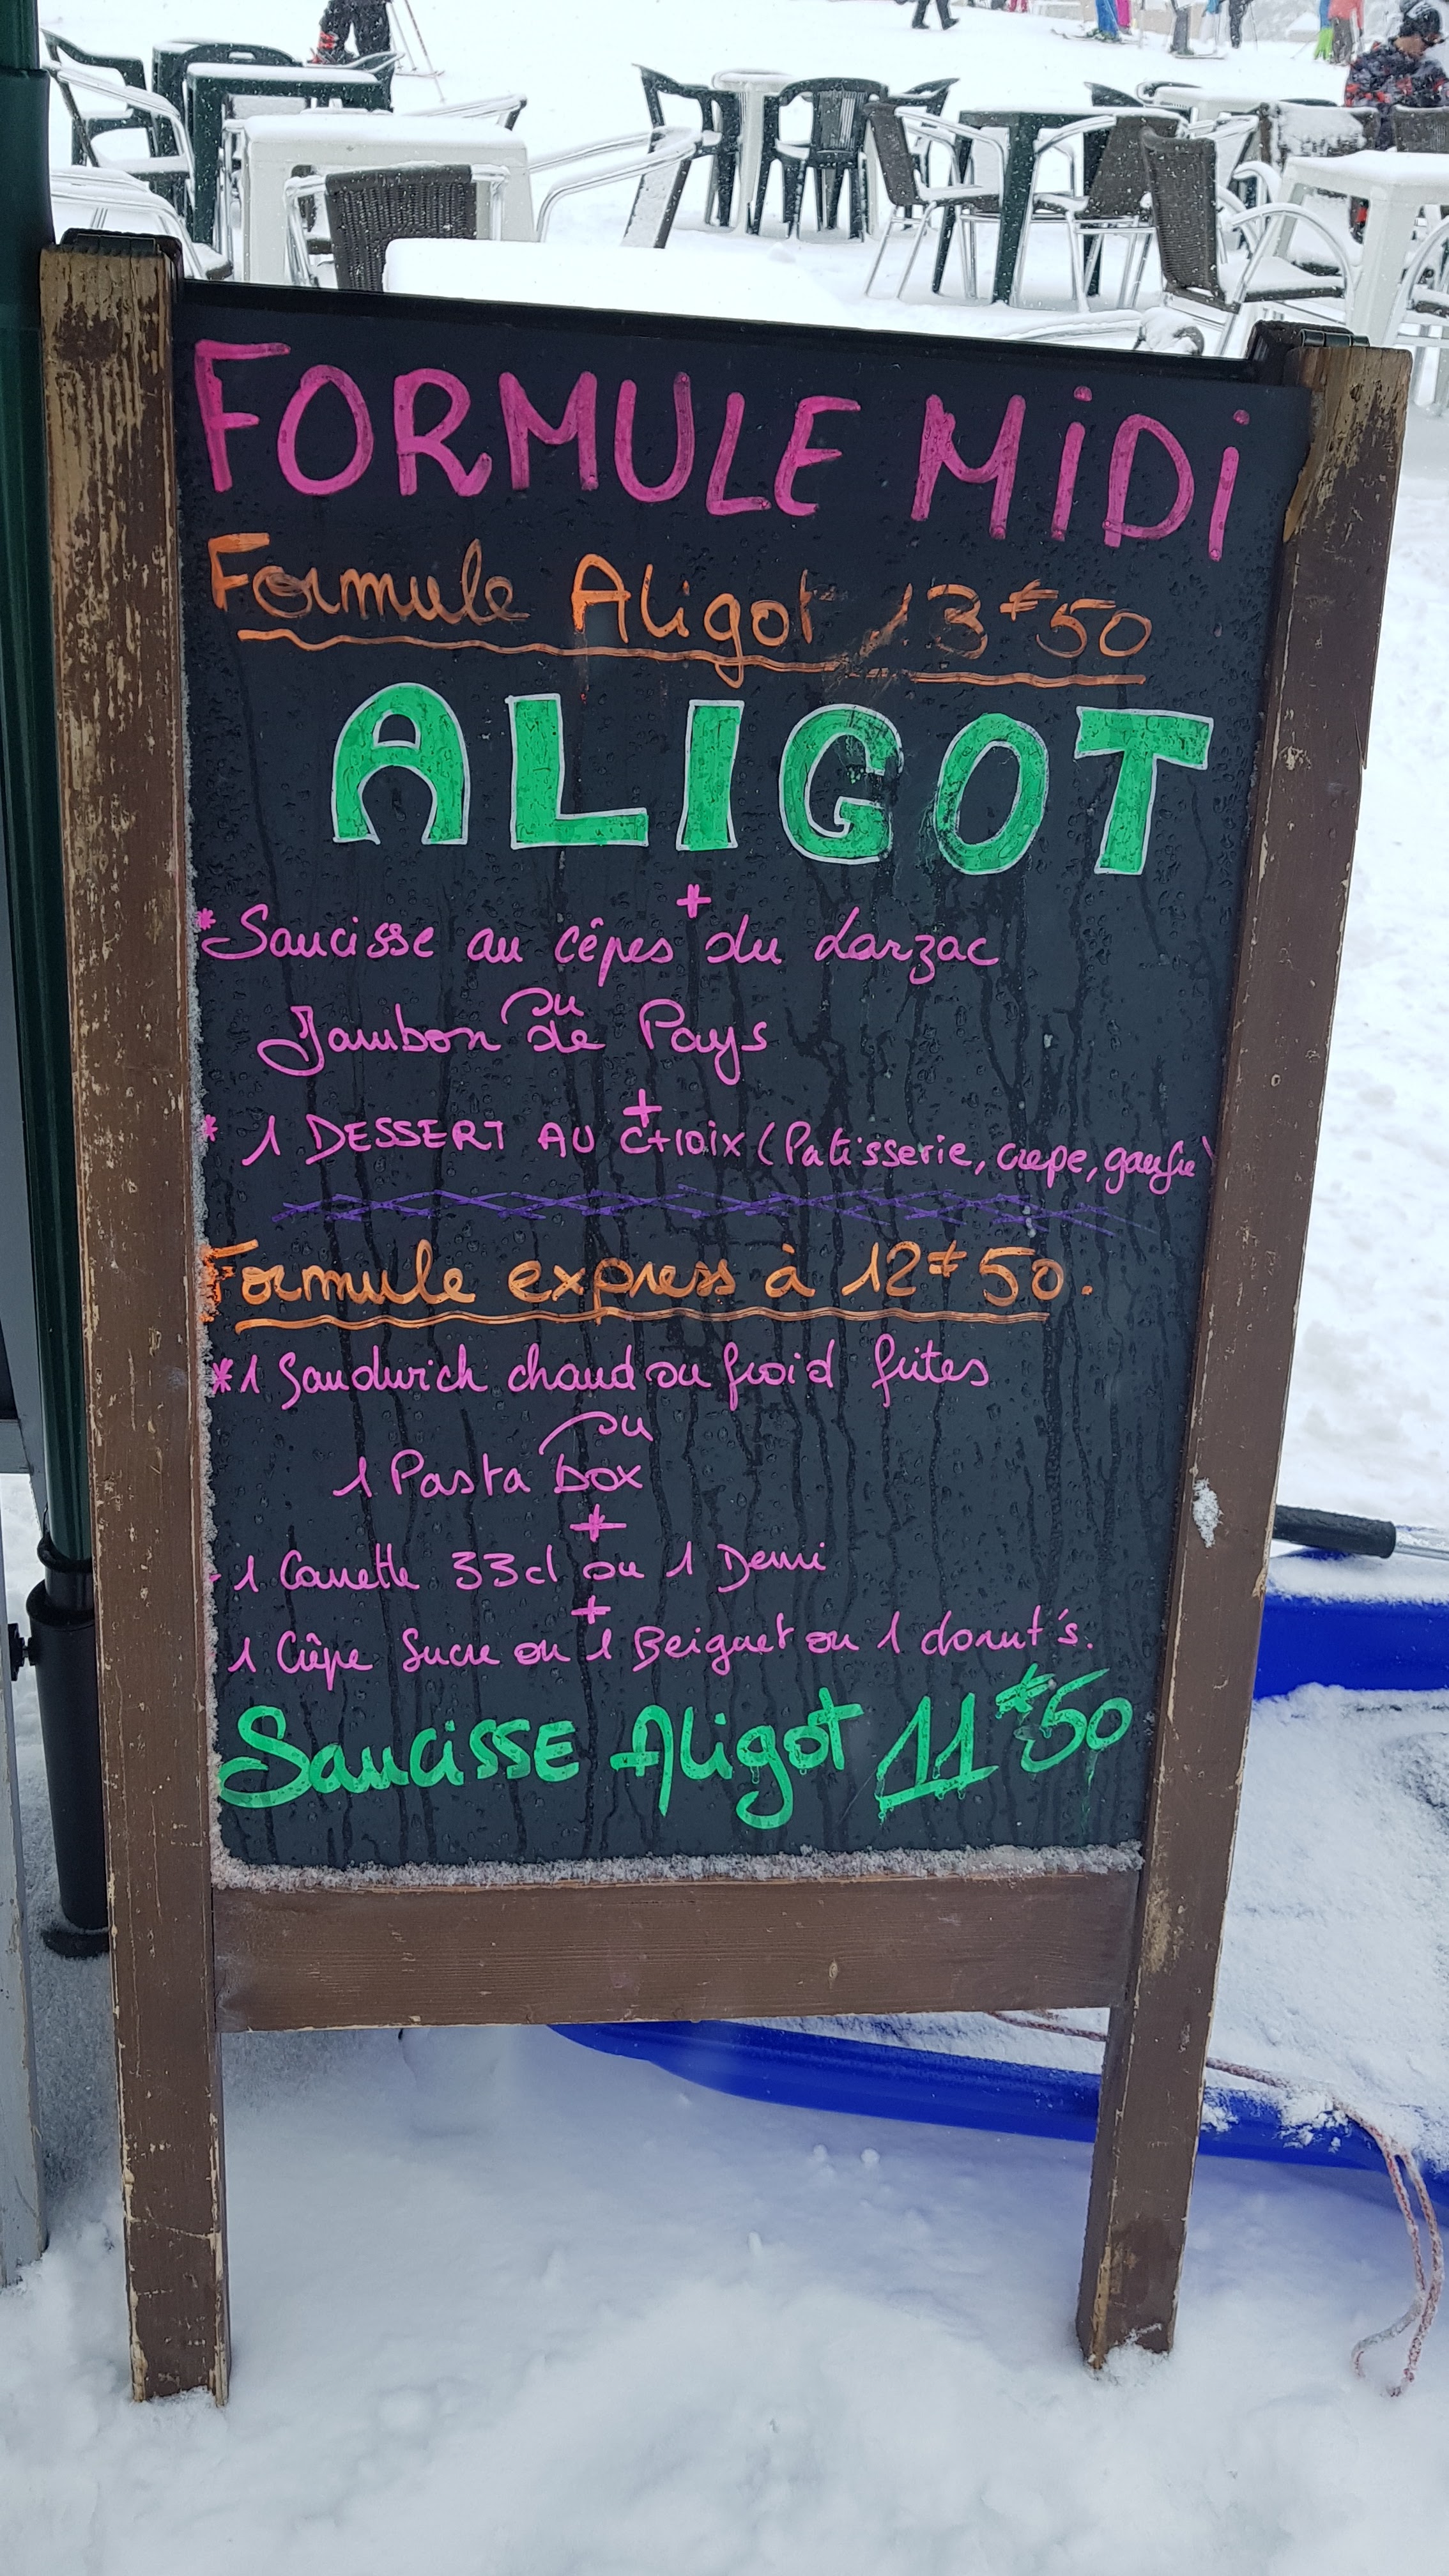 FORMULE MiDi
Formule Aligot 13€50
ALIGOT
+
*Saucisse au cêpes du Larzac
ou
Jambon de Pays
+
* 1 DESSERT AU CHOiX (Patisserie, crepe, gaufre)
Formule express à 12€50.
*1 Sandwich chaud ou froid frites
ou
1 Pasta box
+
- 1 Canette 33cl ou 1 Demi
+
1 Crêpe Sucre ou 1 Beignet ou 1 donut's.
SauciSSE Aligot 11€50